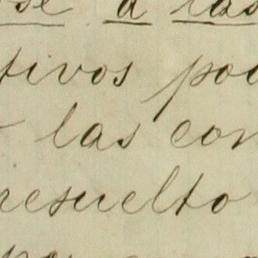 se a las
tivos po
las con
resuelto